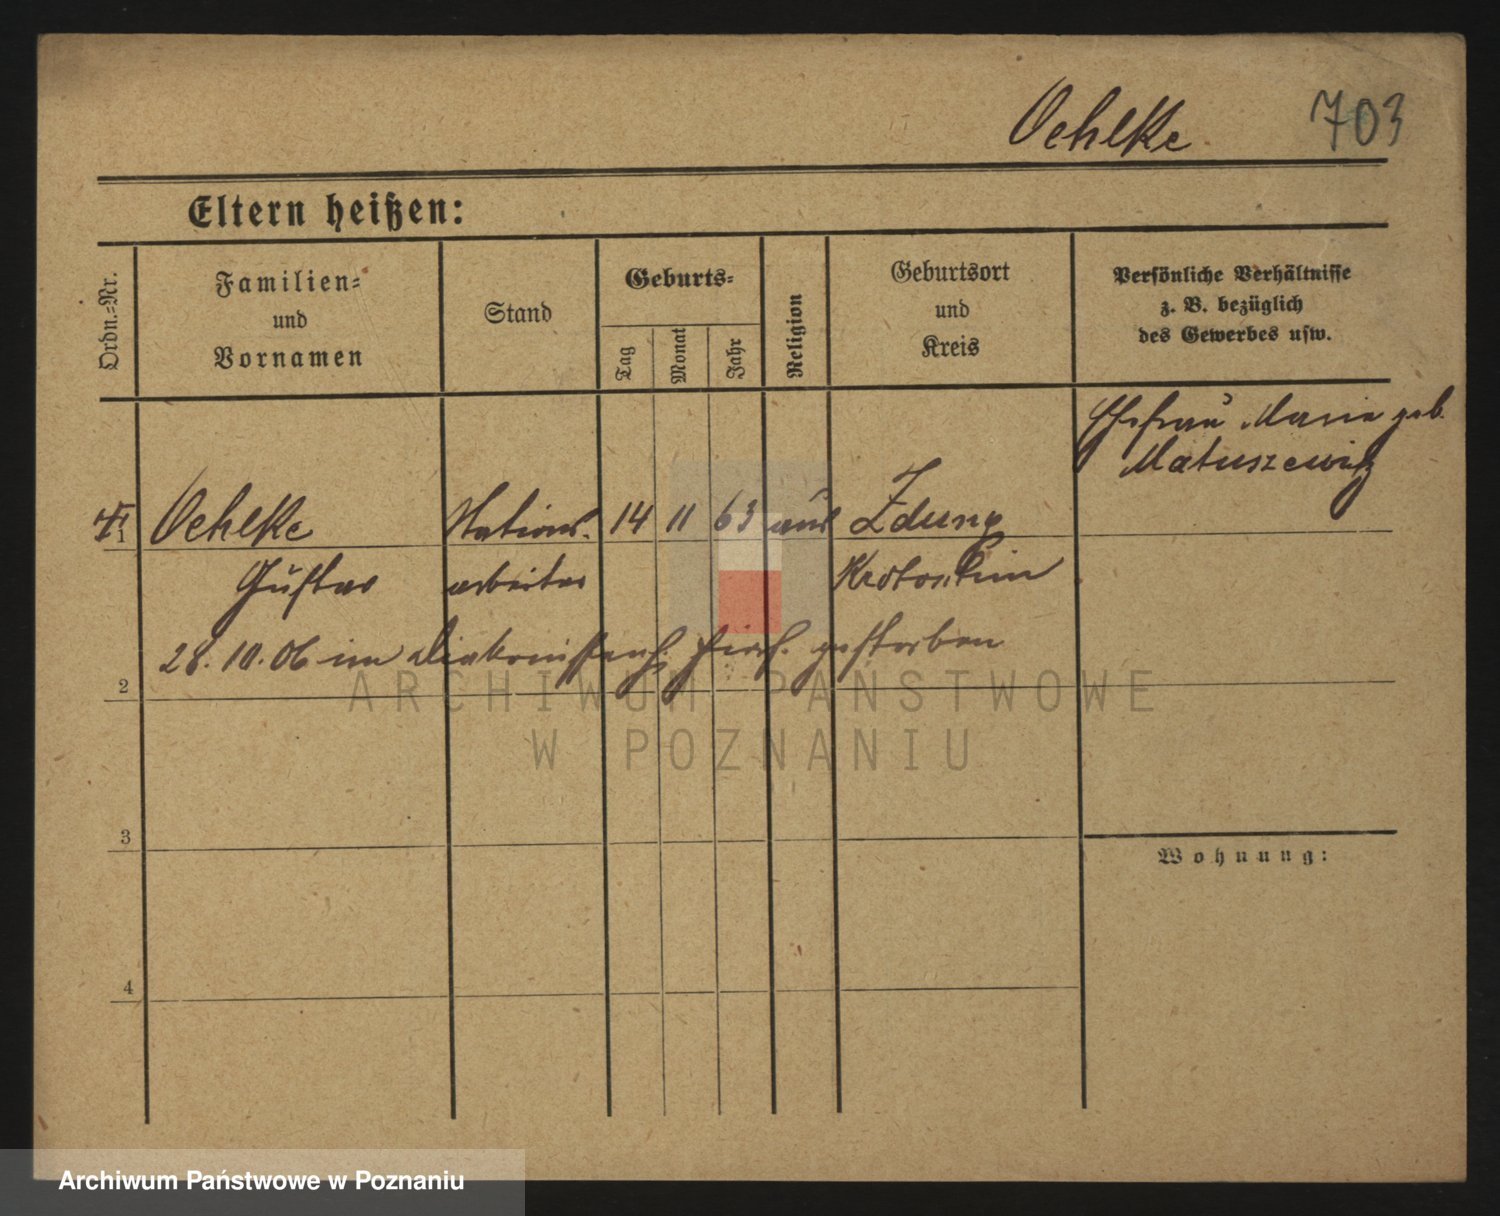 Oehlke 703
Eltern heißen:
Ordn.-Nr.
Familien-
und
Vornamen
Stand
Geburts-
Tag
Monat
Jahr
Religion
Geburtsort
und
Kreis
Persönliche Verhältnisse
z. B. bezüglich
des Gewerbes usw.
Ehefrau Maria geb.
Matuszewitz
1 Oehlke Stations- 14 11 63 Zduny
Gustav arbeiter Krotoschin
28.10.06 im Diakonissenh. hier. gestorben
2
ARCHIWUM PAŃSTWOWE
W POZNANIU
3
Wohnung:
4
Archiwum Państwowe w Poznaniu